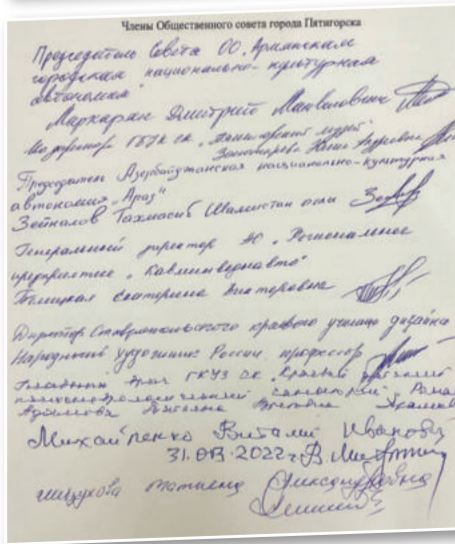 Члены Общественного совета города Пятигорска
Председатель Совета ОО „Армянская
городская национально-культурная
автономия"
Маркарян Дмитрий Манвелович
директора ГБУК СК „Пятигорский музей"
Председатель Азербайджанская национально-культурная
автономия „Араз"
Зейналов Тахмасиб Шамистан оглы
Генеральный директор АО „Региональное
предприятие „Кавминводавто"
Белицкая Екатерина Викторовна
Директор Ставропольского краевого училища дизайна
Народный художник России, профессор
Главный врач ГКУЗ СК „Краевой детский
санаторий
Михайленко Виталий Иванович
31.03.2022г.
Татьяна Александровна